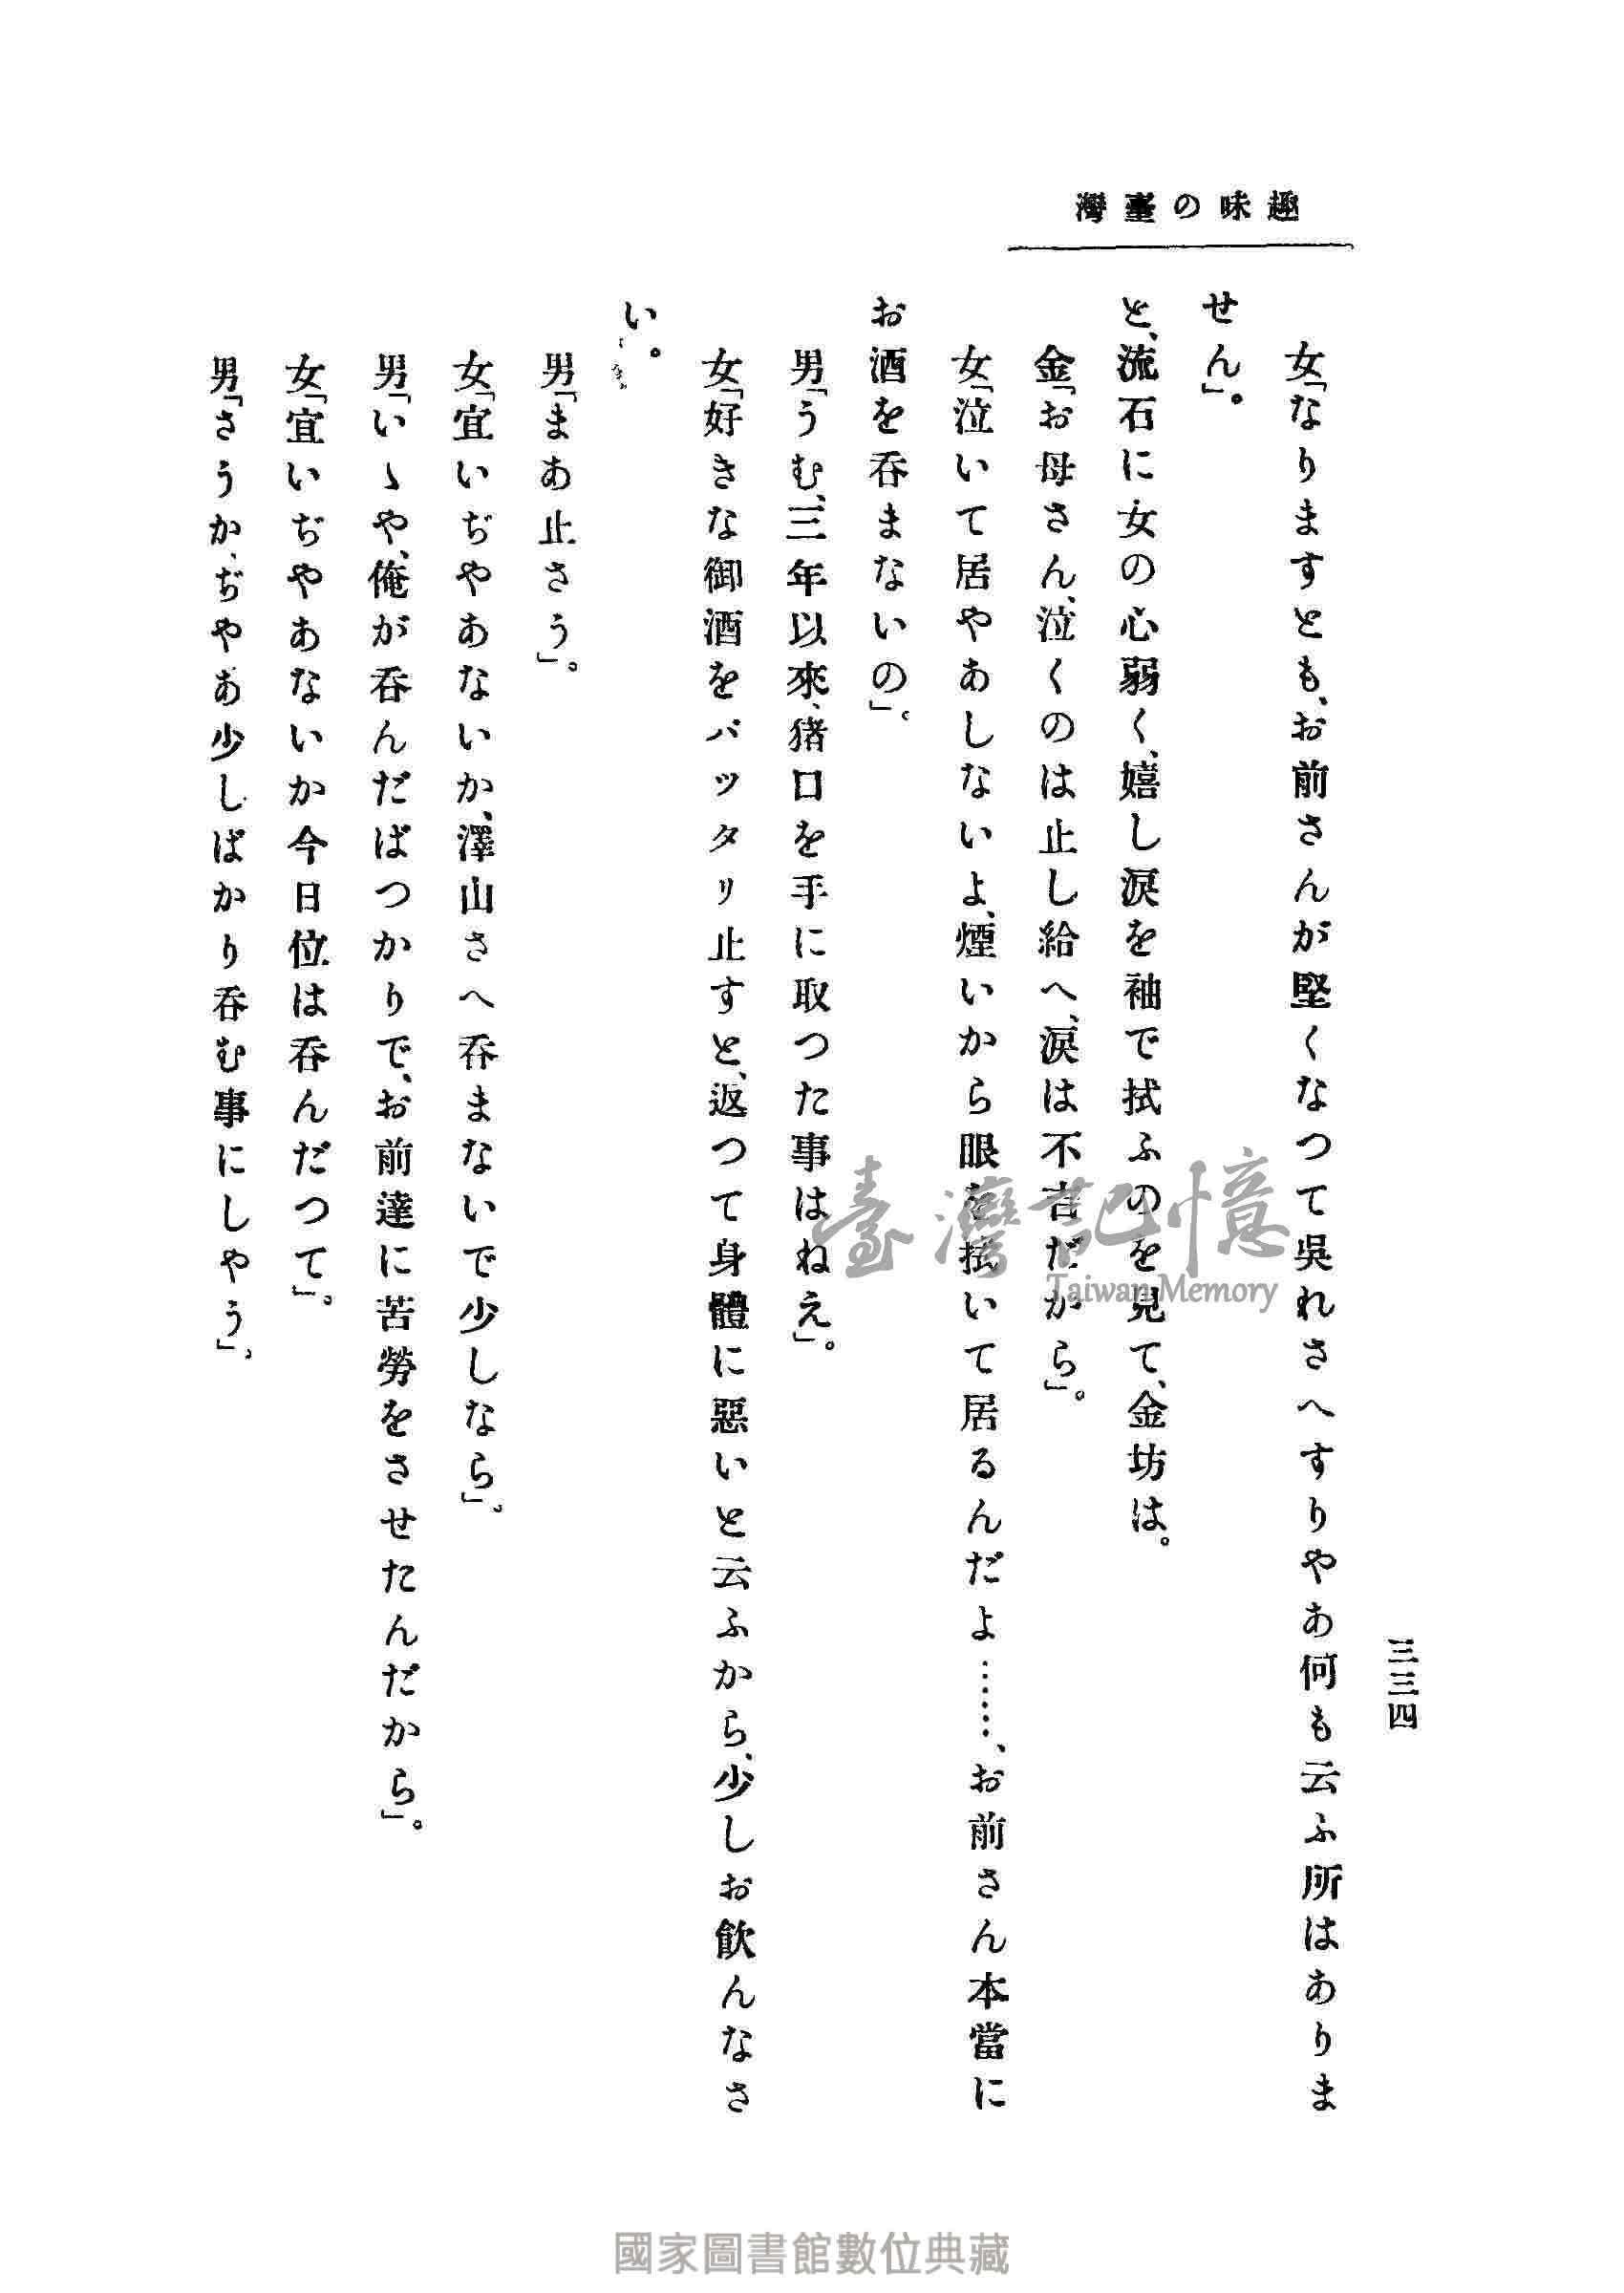 趣味の臺灣
三三四
女「なりますとも、お前さんが堅くなつて吳れさへすりやあ何も云ふ所はありま
せん」。
と、流石に女の心弱く、嬉し淚を袖で拭ふのを見て、金坊は。
金「お母さん、泣くのは止し給へ、淚は不吉だから」。
女「泣いて居やあしないよ、煙いから眼を拭いて居るんだよ……、お前さん本當に
お酒を呑まないの」。
男「うむ、三年以來、猪口を手に取つた事はねえ」。
女「好きな御酒をバッタリ止すと、返つて身體に惡いと云ふから、少しお飮んなさ
い。
男「まあ止さう」。
女「宜いぢやあないか、澤山さへ呑まないで少しなら」。
男「いゝや、俺が呑んだばつかりで、お前達に苦勞をさせたんだから」。
女「宜いぢやあないか今日位は呑んだつて」。
男「さうか、ぢやあ少しばかり呑む事にしやう」。
臺灣記憶
Taiwan Memory
國家圖書館數位典藏